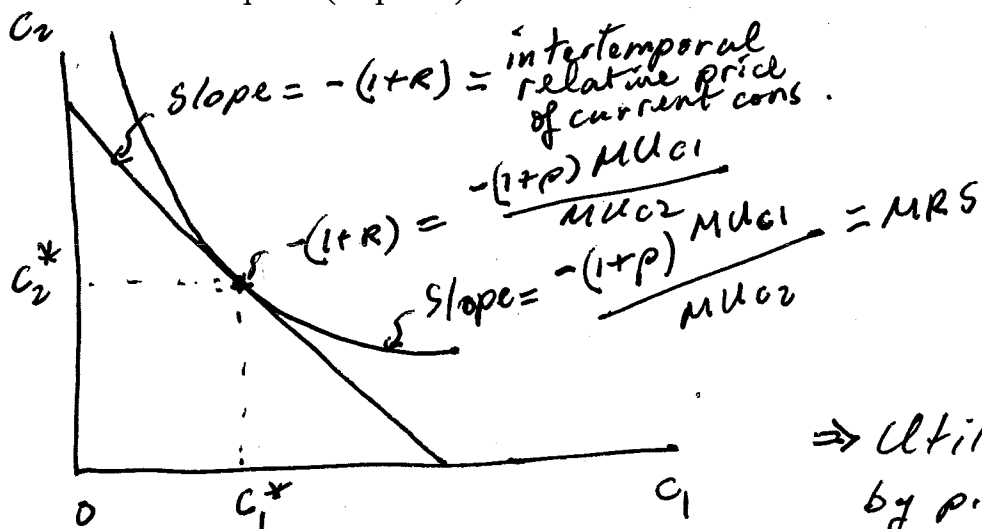 C₂
Slope = -(1+R) = intertemporal
relative price
of current cons.
-(1+R) = -(1+ρ) MU_{C1} / MU_{C2}
Slope = -(1+ρ) MU_{C1} / MU_{C2} = MRS
C₂*
⇒ Util
0
C₁*
C₁
by